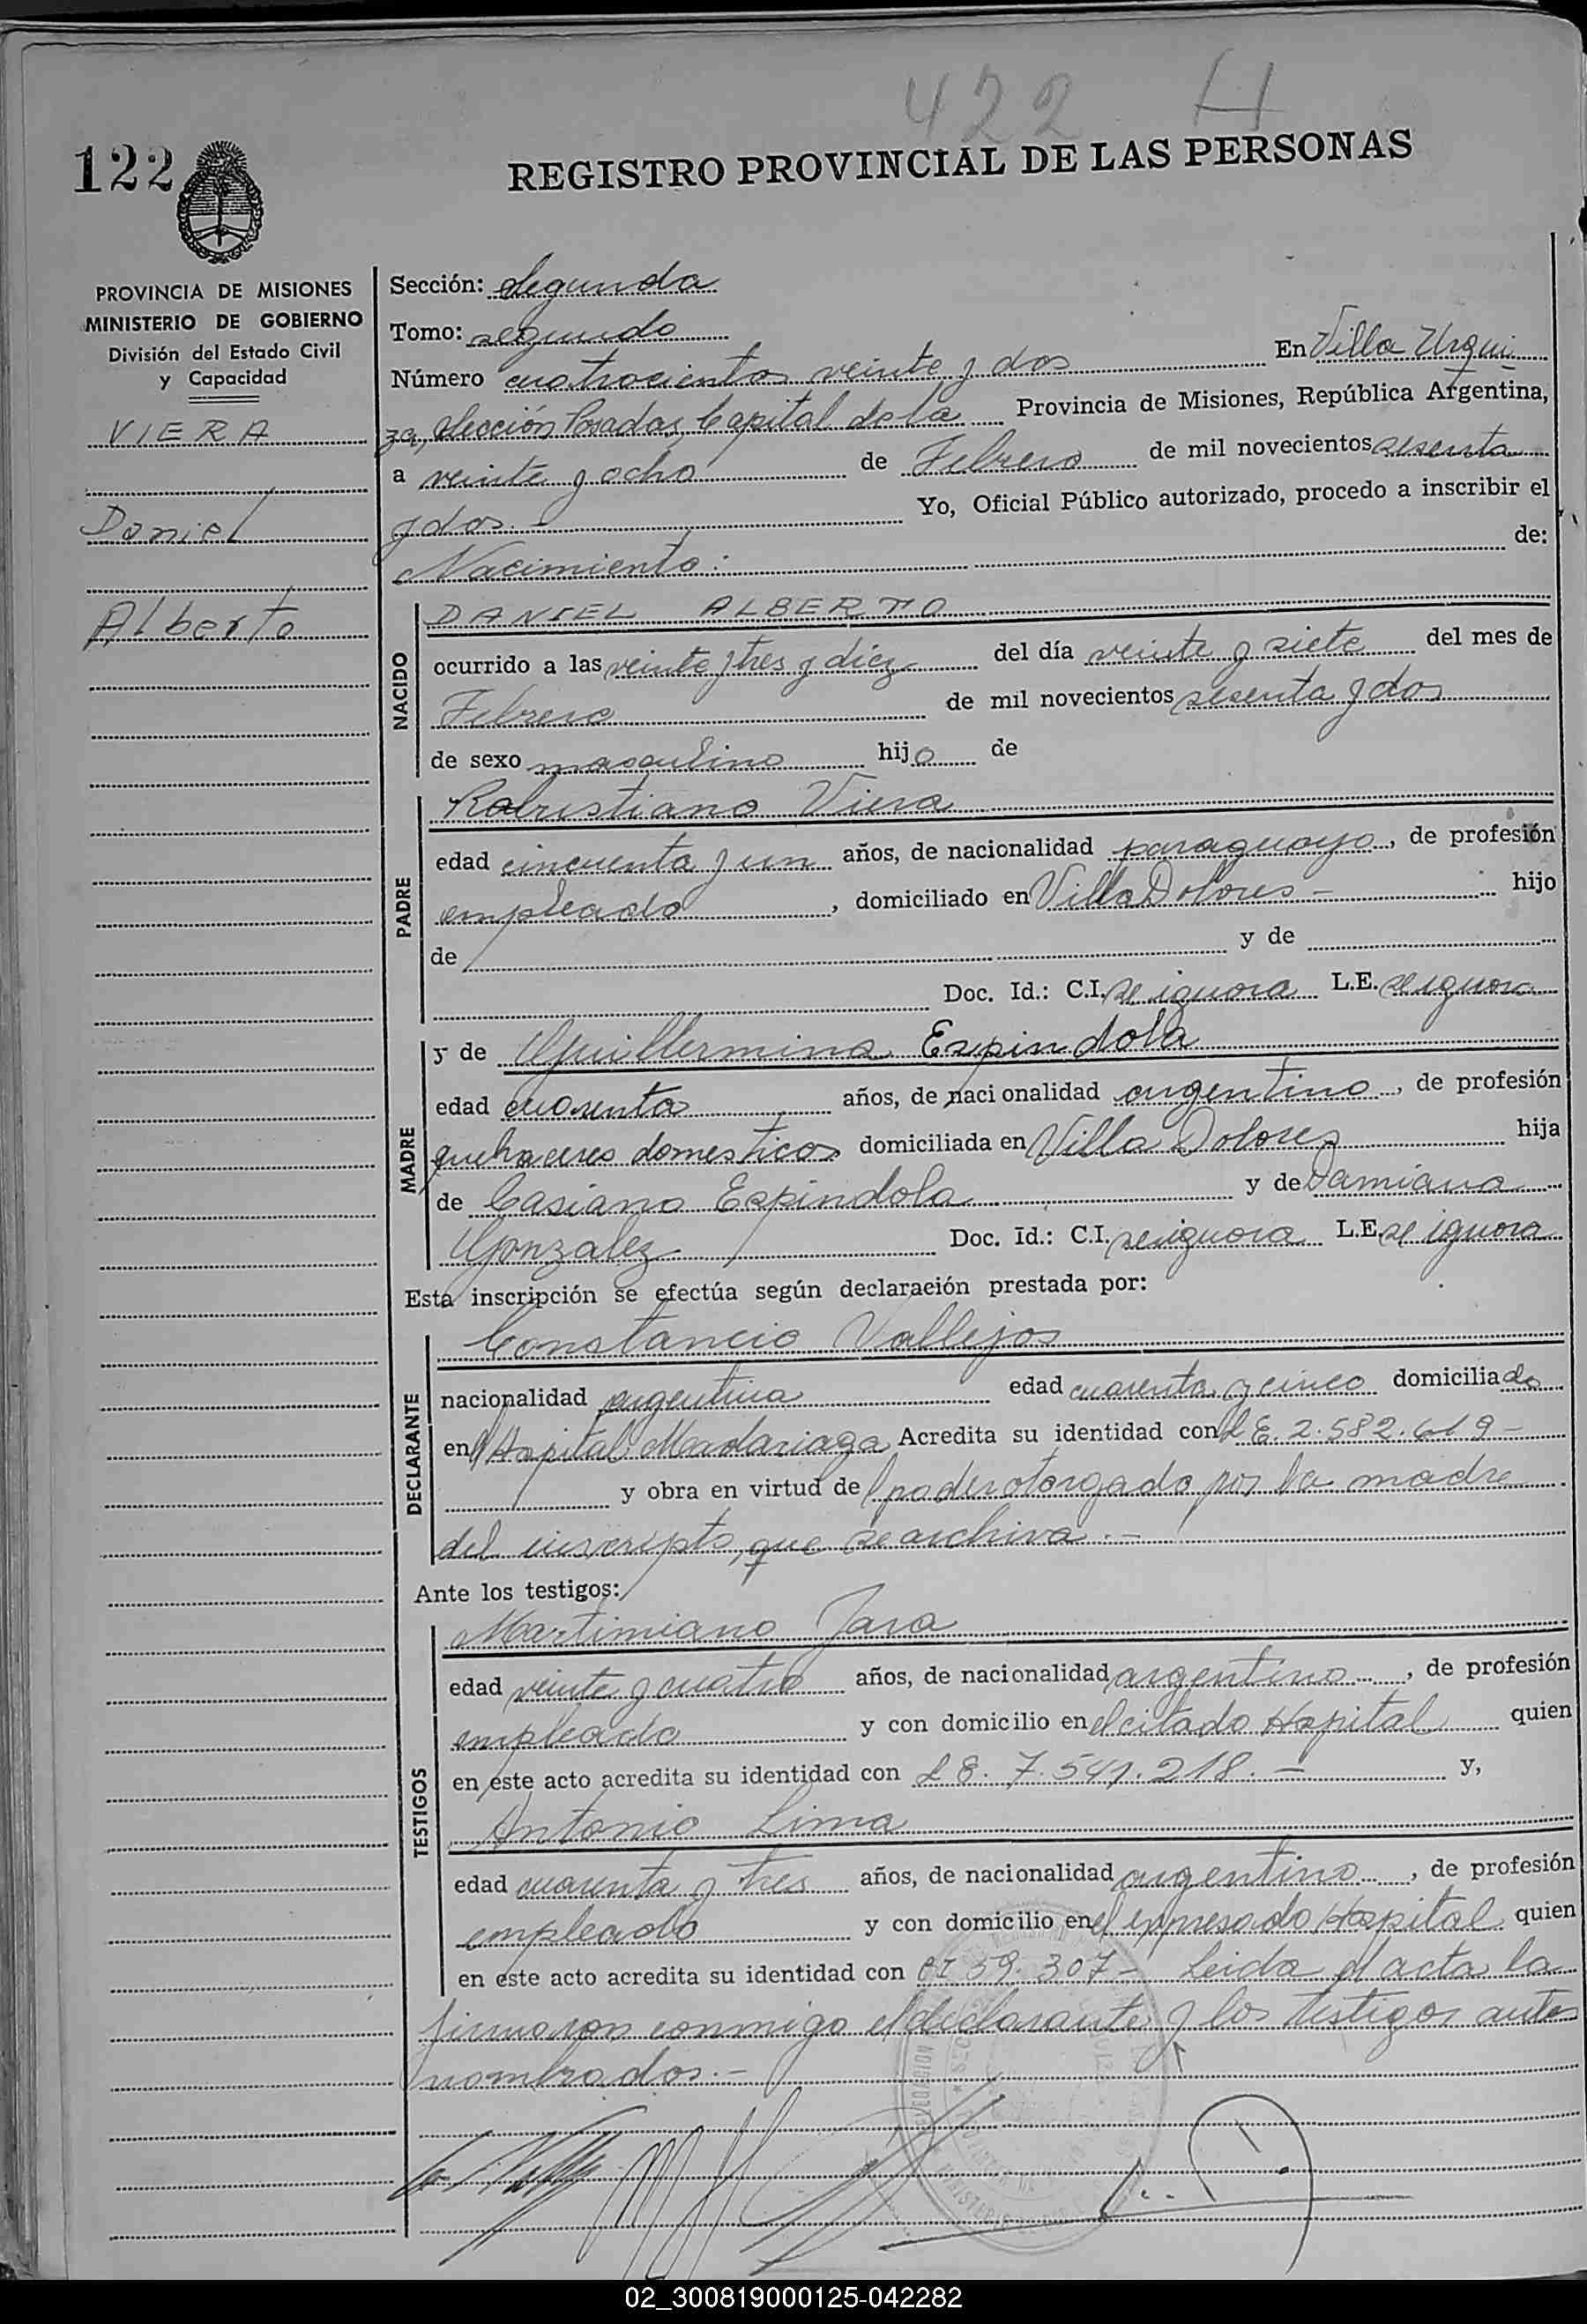 422 H
122
REGISTRO PROVINCIAL DE LAS PERSONAS
PROVINCIA DE MISIONES
MINISTERIO DE GOBIERNO
División del Estado Civil
y Capacidad
VIERA
Daniel
Alberto
Sección: Segunda
Tomo: segundo
Número cuatrocientos veinte y dos En Villa Urqui
za, Sección Posadas, Capital de la Provincia de Misiones, República Argentina,
a veinte y ocho de Febrero de mil novecientos sesenta
y dos.- Yo, Oficial Público autorizado, procedo a inscribir el
Nacimiento: de:
NACIDO
DANIEL ALBERTO
ocurrido a las veinte y tres y diez del día veinte y siete del mes de
Febrero de mil novecientos sesenta y dos
de sexo masculino hijo de
PADRE
Viera
edad cincuenta y un años, de nacionalidad paraguayo, de profesión
empleado, domiciliado en Villa Dolores - hijo
de y de
Doc. Id.: C.I. se ignora L.E. se ignora
MADRE
y de Guillermina Espindola
edad cuarenta años, de nacionalidad argentina, de profesión
quehaceres domesticos domiciliada en Villa Dolores hija
de Casiano Espindola y de Damiana
Gonzalez Doc. Id.: C.I. se ignora L.E. se ignora
Esta inscripción se efectúa según declaración prestada por:
DECLARANTE
Constancio Vallejos
nacionalidad argentina edad cuarenta y cinco domiciliado
en Hospital Madariaga Acredita su identidad con L E. 2.582.619 -
y obra en virtud del poder otorgado por la madre
del inscripto, que se archiva.-
Ante los testigos:
TESTIGOS
Martimiano Jara
edad veinte y cuatro años, de nacionalidad argentino, de profesión
empleado y con domicilio en el citado Hospital quien
en este acto acredita su identidad con L E. 7.541.218.- y,
Antonio Lima
edad cuarenta y tres años, de nacionalidad argentino, de profesión
empleado y con domicilio en el expresado Hospital quien
en este acto acredita su identidad con CI 39.307- Leida el acta la
firmaron conmigo el declarante y los testigos antes
nombrados.-
02_300819000125-042282